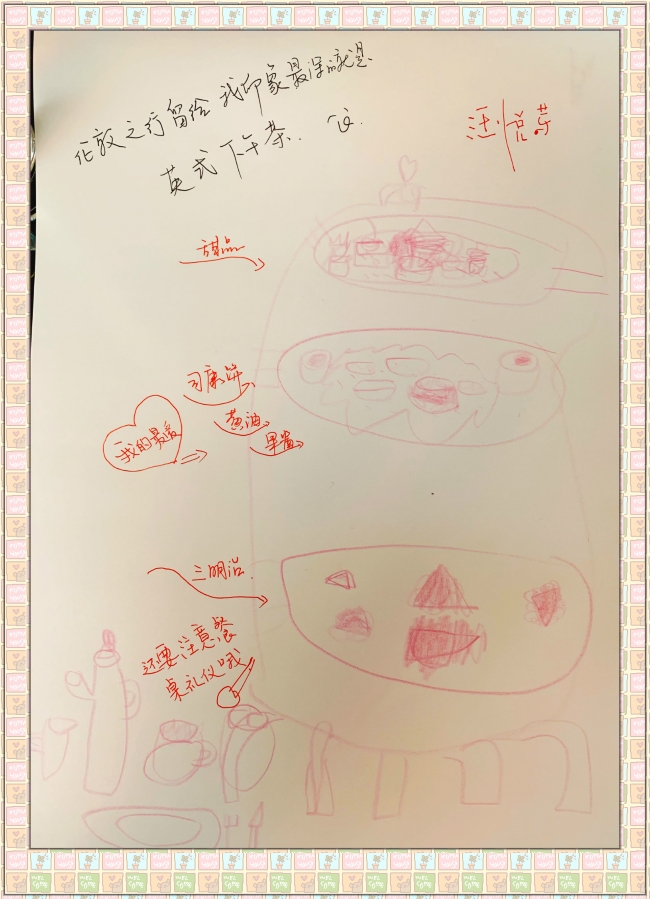 伦敦之行留给我印象最深的就是
英式下午茶.
汪悦芊
甜品
司康饼
我的最爱
黄油
果酱
三明治
还要注意餐
桌礼仪哦